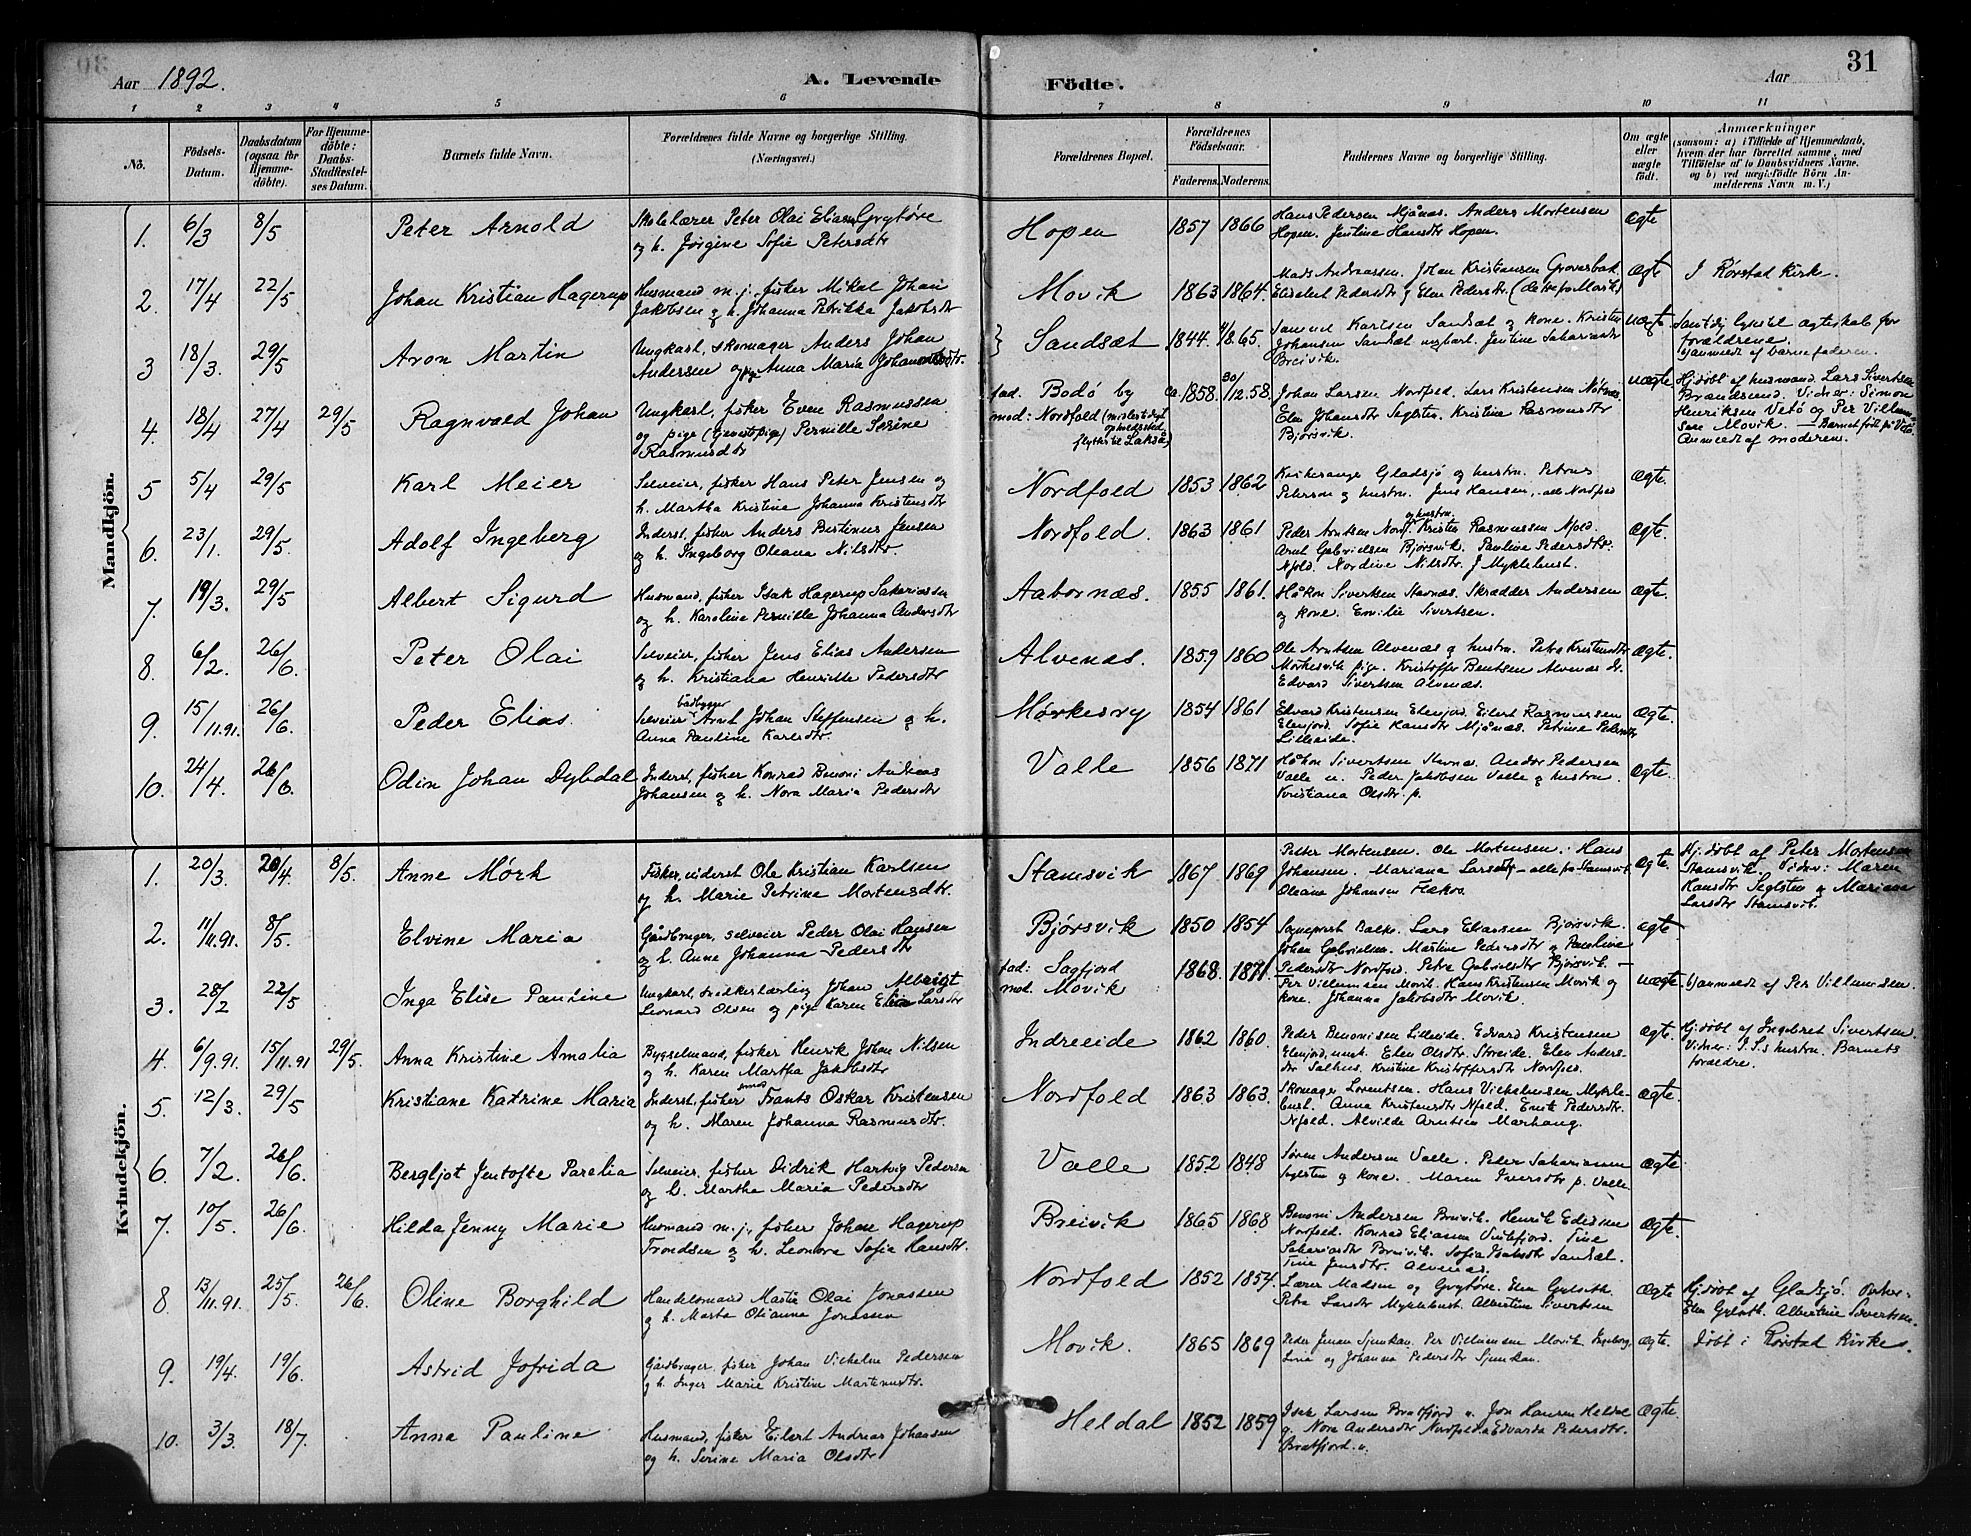 Aar 1892.
A. Levende
Födte.
Aar
31
1 2 3 4 5 6 7 8 9 10 11
No.
Födsels-Datum.
Daabsdatum (ogsaa for Hjemmedöbte).
For Hjemmedöbte: Daabs-Stadfæstelses Datum.
Barnets fulde Navn.
Forældrenes fulde Navne og borgerlige Stilling. (Næringsvei.)
Forældrenes Bopæl.
Forældrenes Födselsaar.
Faderens. Moderens.
Faddernes Navne og borgerlige Stilling.
Om ægte eller uægte födt.
Anmærkninger
(saasom: a) i Tilfælde af Hjemmedaab, hvem der har forrettet samme, med Tilföielse af to Daabsvidners Navne, og b) ved uægtefödte Börn Anmelderens Navn m. V.)
Mandkjön.
1. 6/3 8/5 Peter Arnold Skolelærer Peter Olai Elias Grytøre og h. Jørgine Sofie Petersdtr Hopen 1857 1866 Hans Pedersen Mjånæs. Anders Mortensen Hopen. Jentine Hansdtr Hopen. ægte
2. 17/4 22/5 Johan Kristian Hagerup Husmand m. j., fisker Mikal Johan Jakobsen og h. Johanna Petrikka Jakobsdtr Movik 1863 1864. Mads Andreassen. Johan Kristiansen Elisabet Pedersdtr og Elen Pedersdtr. ægte I Rørstad Kirke.
3 18/3. 29/5 Aron Martin Ungkarl, skomager Anders Johan Andersen og pige Anna Maria Sandsæt 1844. 1865. Samuel Karlsen Sandsæt og kone. Kristen Johansen Sandsæt ungkarl. Jentine Breivik. uægte. Samtidig lystet ægteskab for forældrene. b) anmeldt af barnefaderen.
4. 18/4 27/4 29/5 Ragnvald Johan Ungkarl, fisker Even Rasmussen og pige Pernille Serine Rasmusdtr fad: Bodö by mod: Nordfold (midlertidigt opholdssted, flytter til Lakså) ca. 1858. 30/12.58. Johan Larsen Norfold. Lars Kristensen Elen Johansdtr Seglsten. Kristine Rasmusdtr Bjørsvik. uægte Hj. døbt af husmand Lars Sivertsen Brandsund. Vidner: Simon Henriksen Vetö og Per Villumsen Movik. — Barnet født på Vetö. Anmeldt af moderen.
5 5/4 29/5 Karl Meier Selveier, fisker Hans Peter Jensen og h. Martha Kristine Johanna Kristensdtr Nordfold 1853 1862 Kirkesanger Gladsjø og hustru. Petrus Peterson og hustru. Jens Hansen, alle Nordfold ægte.
6. 23/1. 29/5. Adolf Ingeberg Inderst, fisker Anders Bertinus Jensen og h. Ingeborg Oleana Nilsdtr. Nordfold. 1863 1861 Peder Arntsen Nordf. og hustru. Krister Rasmussen Nfold. Arnt Gabrielsen Bjørsvik. Pauline Pedersdtr. Nfold. Nordine Nilsdtr. Myklebust. ægte.
7. 19/3. 29/5 Albert Sigurd Husmand, fisker Isak Hagerup Sakariassen og h. Karoline Pernille Johanna Andersdtr Aabornæs. 1855 1861. Håkon Sivertsen Stavnæs. Skrædder Andersen og kone. Emilie Sivertsen. ægte.
8. 6/2. 26/6. Peter Olai Selveier, fisker Jens Elias Andersen og h. Kristiana Henriette Pedersdtr Alvenæs. 1859 1860 Ole Arntsen Alvenæs og hustru. Petra Kristensdtr Mørkesvik pige. Kristoffer Bentsen Alvenæs Edvard Sivertsen Alvenæs. ægte.
9. 15/11.91. 26/6. Peder Elias. Selveier bådbygger Arnt Johan Steffensen og h. Anna Pauline Karlsdtr. Mørkesvy 1854 1861 Edvard Kristensen Elenjord. Eilert Rasmussen Elenjord. Sofie Hansdtr Mjånæs. Petrine Pedersdtr Lilleeide. ægte.
10. 24/4. 26/6. Odin Johan Dybdal Inderst, fisker Konrad Benoni Andreas Johansen og h. Nora Maria Pedersdtr Valle 1856 1871 Håkon Sivertsen Stavnæs. Andor Pedersen Valle u. Peder Jakobsen Valle og hustru. Kristiana Olsdtr. p. ægte.
Kvindekjön.
1. 20/3. 20/4. 8/5. Anne Mørk Fisker, inderst Ole Kristian Karlsen og h. Marie Petrine Mortensdtr. Stamsvik 1867 1869 Petter Mortensen. Ole Mortensen. Hans Johansen. Mariana Larsdtr — alle på Stamsvik. Oleana Johansen ægte Hj. døbt af Peter Mortensen Stamsvik. Vidner: Maren Hansdtr Seglsten og Mariana Larsdtr Stamsvik.
2. 11/11.91. 8/5. Elvine Maria Gårdbruger, selveier Peder Olai Hansen og h. Anne Johanna Pedersdtr Bjørsvik 1850 1854 Sogneprest Balke. Lars Eliassen Bjørsvik. Johan Gabrielsen. Martine Pedersdtr og Pauline Pedersdtr Nordfold. Petra Gabrielsdtr Bjørsvik. — ægte
3. 28/2 22/5 Inga Elise Pauline Ungkarl, snidkerlærling Johan Albrigt Leonard Olsen og pige Karen Elisa Larsdtr fad: Sagfjord mod. Movik 1868. 1871. Per Villumsen Movik. Hans Kristensen Movik og kone. Johanna Jakobsdtr Movik. uægte. b) anmeldt af Per Villumsen.
4 6/9.91. 15/11.91 29/5. Anna Kristine Amalia Bygselmand, fisker Henrik Johan Nilsen og h. Karen Martha Jakobsdtr Indreeide 1862 1860. Peder Benonisen Lilleeide. Edvard Kristensen Elenjord, Elen Olsdtr Storeide. Elen Andersdtr Salhus. Kristine Kristoffersdtr Nordfold. ægte. Hj. døbt af Ingebret Sivertsen. Vidner: I. S.s hustru. Barnets forældre.
5. 12/3. 29/5 Kristiane Katrine Maria Inderst, fisker Frants Oskar Kristensen og h. Maren Johanna Rasmusdtr. Nordfold 1863 1863. Skomager Lorentsen. Hans Vilhelmsen Myklebust. Anna Kristensdtr Nfold. Pedersdtr. Nfold. Alvilde Arntsen Marhaug. ægte.
6. 7/2. 26/6. Bergljot Jentofte Parelia Selveier, fisker Didrik Hartvig Pedersen og h. Martha Maria Pedersdtr Valle 1852 1848 Søren Andersen Valle. Peter Sakariassen Seglsten og kone. Maren Iversdtr p. Valle. ægte
7. 10/5. 26/6. Hilda Jenny Marie Husmand m. j., fisker Johan Hagerup Trondsen og h. Leonora Sofie Hansdtr. Breivik 1865 1868 Benoni Andersen Breivik. Henrik Nordfold. Konrad Eliassen Vinkfjord. Tine Sakariasdtr Breivik. Sofia Isaksdtr Sandsæt. Tine Jensdtr. Alvenæs. ægte.
8. 13/11.91. 25/5. 26/6. Oline Borghild Handelsmand Martin Olai Jonassen og h. Marta Olianna Jonassen Nordfold 1852 1854. Lærer Madsen og Grytøre. Elen Petra Larsdtr Myklebust. Albertine Sivertsen ægte Hj. døbt af Gladsjø. Elen Albertine Sivertsen.
9. 19/4. 19/6. Astrid Jofrida Gårdbruger, fisker Johan Vilhelm Pedersen og h. Inger Marie Kristine Martinusdtr. Movik. 1865 1869 Peder Jensen Sjunkan. Per Villumsen Movik. Ingeborg og Johanna Pedersdtr Sjunkan. ægte. Døbt i Rørstad Kirke.
10. 3/3. 18/7. Anna Pauline Husmand, fisker Eilert Andreas Johansen og h. Serine Maria Olsdtr Heldal 1852 1859 Isak Larsen Bratfjord u. Jon Hansen Heldal g. Nora Andersdtr Nordfold. Edvarda Pedersdtr. Bratfjord. u. ægte.